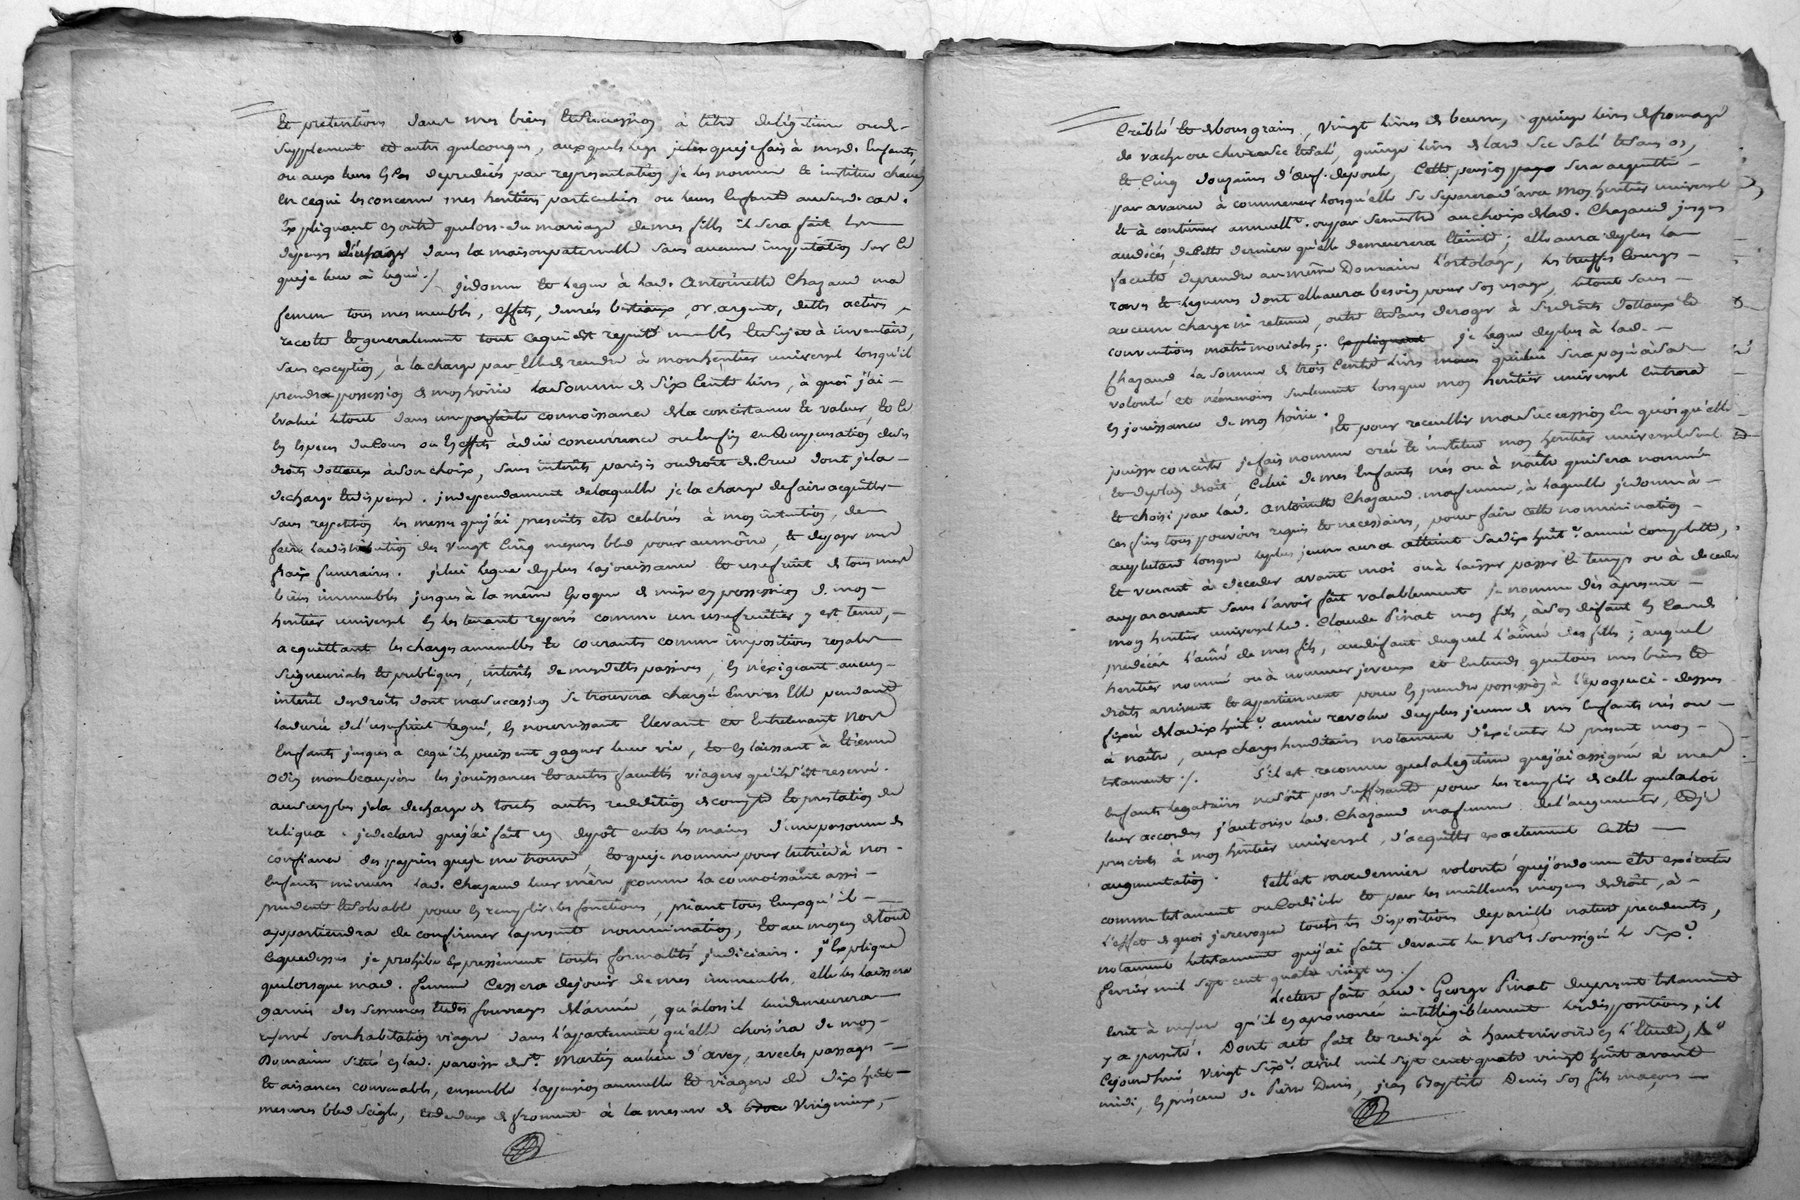 Et prétentions dans mes biens et succession à titre de légitime ou de
supplement et autre quelconques, auxquels legs je fais à mesd. Enfants,
ou aux leurs predecédés par representation je les nomme et institue chacun
en cequi les concerne mes heritiers particuliers ou leurs Enfants audevd. cas.
Expliquant en outre que lors du mariage de mes fills il sera fait une
depense d'usage dans la maison paternelle sans aucune imputation sur le
que je leur ai legué ./. je donne et legue à lad. Antoinette Chazaud ma
femme tous mes meubles, effets, denrés bestiaux, or, argent, dettes actives,
recolte et generalement tout cequi est reputé meuble et sujet à inventaire,
sans exception, à la charge par Elle de rendre à mon heritier universel lorsqu'il
prendra possession de mon hoirie la somme de six Cents livres, à quoi j'ai
évalué le tout dans une parfaite connoissance de la consistance et valeur, et ce
en Especes de Cours ou en effets à due concurrence ou Enfin en Compensation de ses
droits dottaux à son choix, sans interets parisis ou droit de Crue dont je la
decharge et dispense. independament de laquelle je la charge de faire acquitter
sans repetition les messes que j'ai prescrits etre celebrés à mon intention, de
faire la distribution des vingt cinq mesures bled pour aumône, et de payer mes
fraix funeraires. je lui legue de plus la jouissance et usufruit de tous mes
biens immeubles jusques à la même Epoque de mise en possession de mon
heritier universel en les tenant reparés comme un usufruitier y est tenu,
acquittant les charges annuelles et courants comme impositions royales
seigneuriales et publiques, interets de mes dettes passives, en n'exigeant aucun
interet des droits dont ma succession se trouvera chargée Envers Elle pendant
la durée de l'usufruit legué, en nourrissant Elevant et Entretenant nos
Enfants jusques à cequ'ils puissent gagner leur vie, et en laissant à Etienne
Odin mon beaupere les jouissances et autres facultés viageres qu'il s'est reservé.
au surplus je la decharge de toute autre reddition de compte et prestation de
reliqua. je declare que j'ai fait un depôt entre les mains d'une personne de
confiance des papiers que je me trouve, et que je nomme pour tutrice à nos
Enfants mineurs lad. Chazaud leur mère, comme la connoissant assé
prudente et solvable pour en remplir les fonctions, priant tous ceux qu'il
appartiendra de confirmer la presente nomination, et au moyen de tout
ce que dessus je prohibe expressément toutes formalités judiciaires. j'Explique
que lorsque mad. femme cessera de jouir de mes immeubles, elle les laissera
garnis des semences et des fourrages de l'année, qu'alors il lui demeurera
reservé son habitation viagere dans l'appartement qu'elle choisira de mon
Domaine situé en lad. paroisse de St. Martin au lieu d'aray, avec les passages
et aisances convenables, ensemble la pension annuelle et viagere de dix huit
mesures bled seigle, et de deux de froment à la mesure de Virignieux,
Criblé et de bons grains, vingt livres de beurre, quinze livres de fromage
de vache ou chevre sec et salé, quinze livres de lard sec salé et sans os,
et cinq douzaines d'œufs de poule, Cette pension sera acquittée
par avance à commencer lorsqu'elle se separera d'avec mon heritier universel
et à continuer annuellt. ou par semestre au choix de lad. Chazaud jusques
au décés de cette derniere qu'elle demeurera Eteinte; elle aura de plus la
faculté de prendre au même Domaine l'ortolage, les truffes Courges
raves et legumes dont elle aura besoin pour son usage, le tout sans
aucune charge ni retenue, outre et sans deroger à ses droits dottaux et
conventions matrimoniales; je legue de plus à lad.
Chazaud la somme de trois Cents livres qui lui sera payée à sa
volonté et néenmoins seulement lorsque mon heritier universel Entrera
en jouissance de mon hoirie. Et pour recueillir ma succession En quoi qu'elle
puisse consister je fais nomme crée et institue mon heritier universel seul
et de plein droit, Celui de mes Enfants nés ou à naître qui sera nommé
et choisi par lad. Antoinette Chazaud ma femme, à laquelle je donne à
ces fins tous pouvoirs requis et necessaires, pour faire cette nomination
auplutard lorsque le plus jeune aura atteint sa dix huite. année complette,
Et venant à deceder avant moi ou à laisser passer le temps ou à deceder
auparavant sans l'avoir fait valablement je nomme dès à present
mon heritier universel led. Claude Pinat mon fils, à son defaut en Cas de
predécès l'aîné de mes fils, au defaut duquel l'aînée des fills; auquel
heritier nommé ou à nommer je veux et Entends que tous mes biens et
droits arrivent et appartiennent pour en prendre possession à l'époque ci-dessus
fixée de la dix huite. année revolue du plus jeune de mes Enfants nés ou
à naître, aux charges hereditaires notament d'exécuter le present mon
testament ./. S'il est reconnu que la légitime que j'ai assignée à mes
Enfants legataires ne soit pas suffisante pour les remplir de celle que la loi
leur accorde, j'autorise lad. Chazaud ma femme de l'augmenter, et je
prescrits à mon heritier universel, d'acquitter exactement cette
augmentation. Telle est ma derniere volonté que j'ordonne etre exécutée
comme testament ou Codicile et par les meilleurs moyens de droit, à
l'effet de quoi je revoque toutes les dispositions de pareille nature precedentes,
notament le testament que j'ai fait devant le Nore. soussigné le sixe.
fevrier mil sept cent quatre vingt un ./.
Lecture faite aud. George Pinat du present testament
Ecrit à mesure qu'il en a prononcé intelligiblement les dispositions, il
y a persisté. Dont acte fait et redigé à hauterivoire en l'Etude,
Cejourdhui vingt sixe. avril mil sept cent quatre vingt huit avant
midi, en présence de Pierre Denis, jean Baptiste Denis son fils maçons